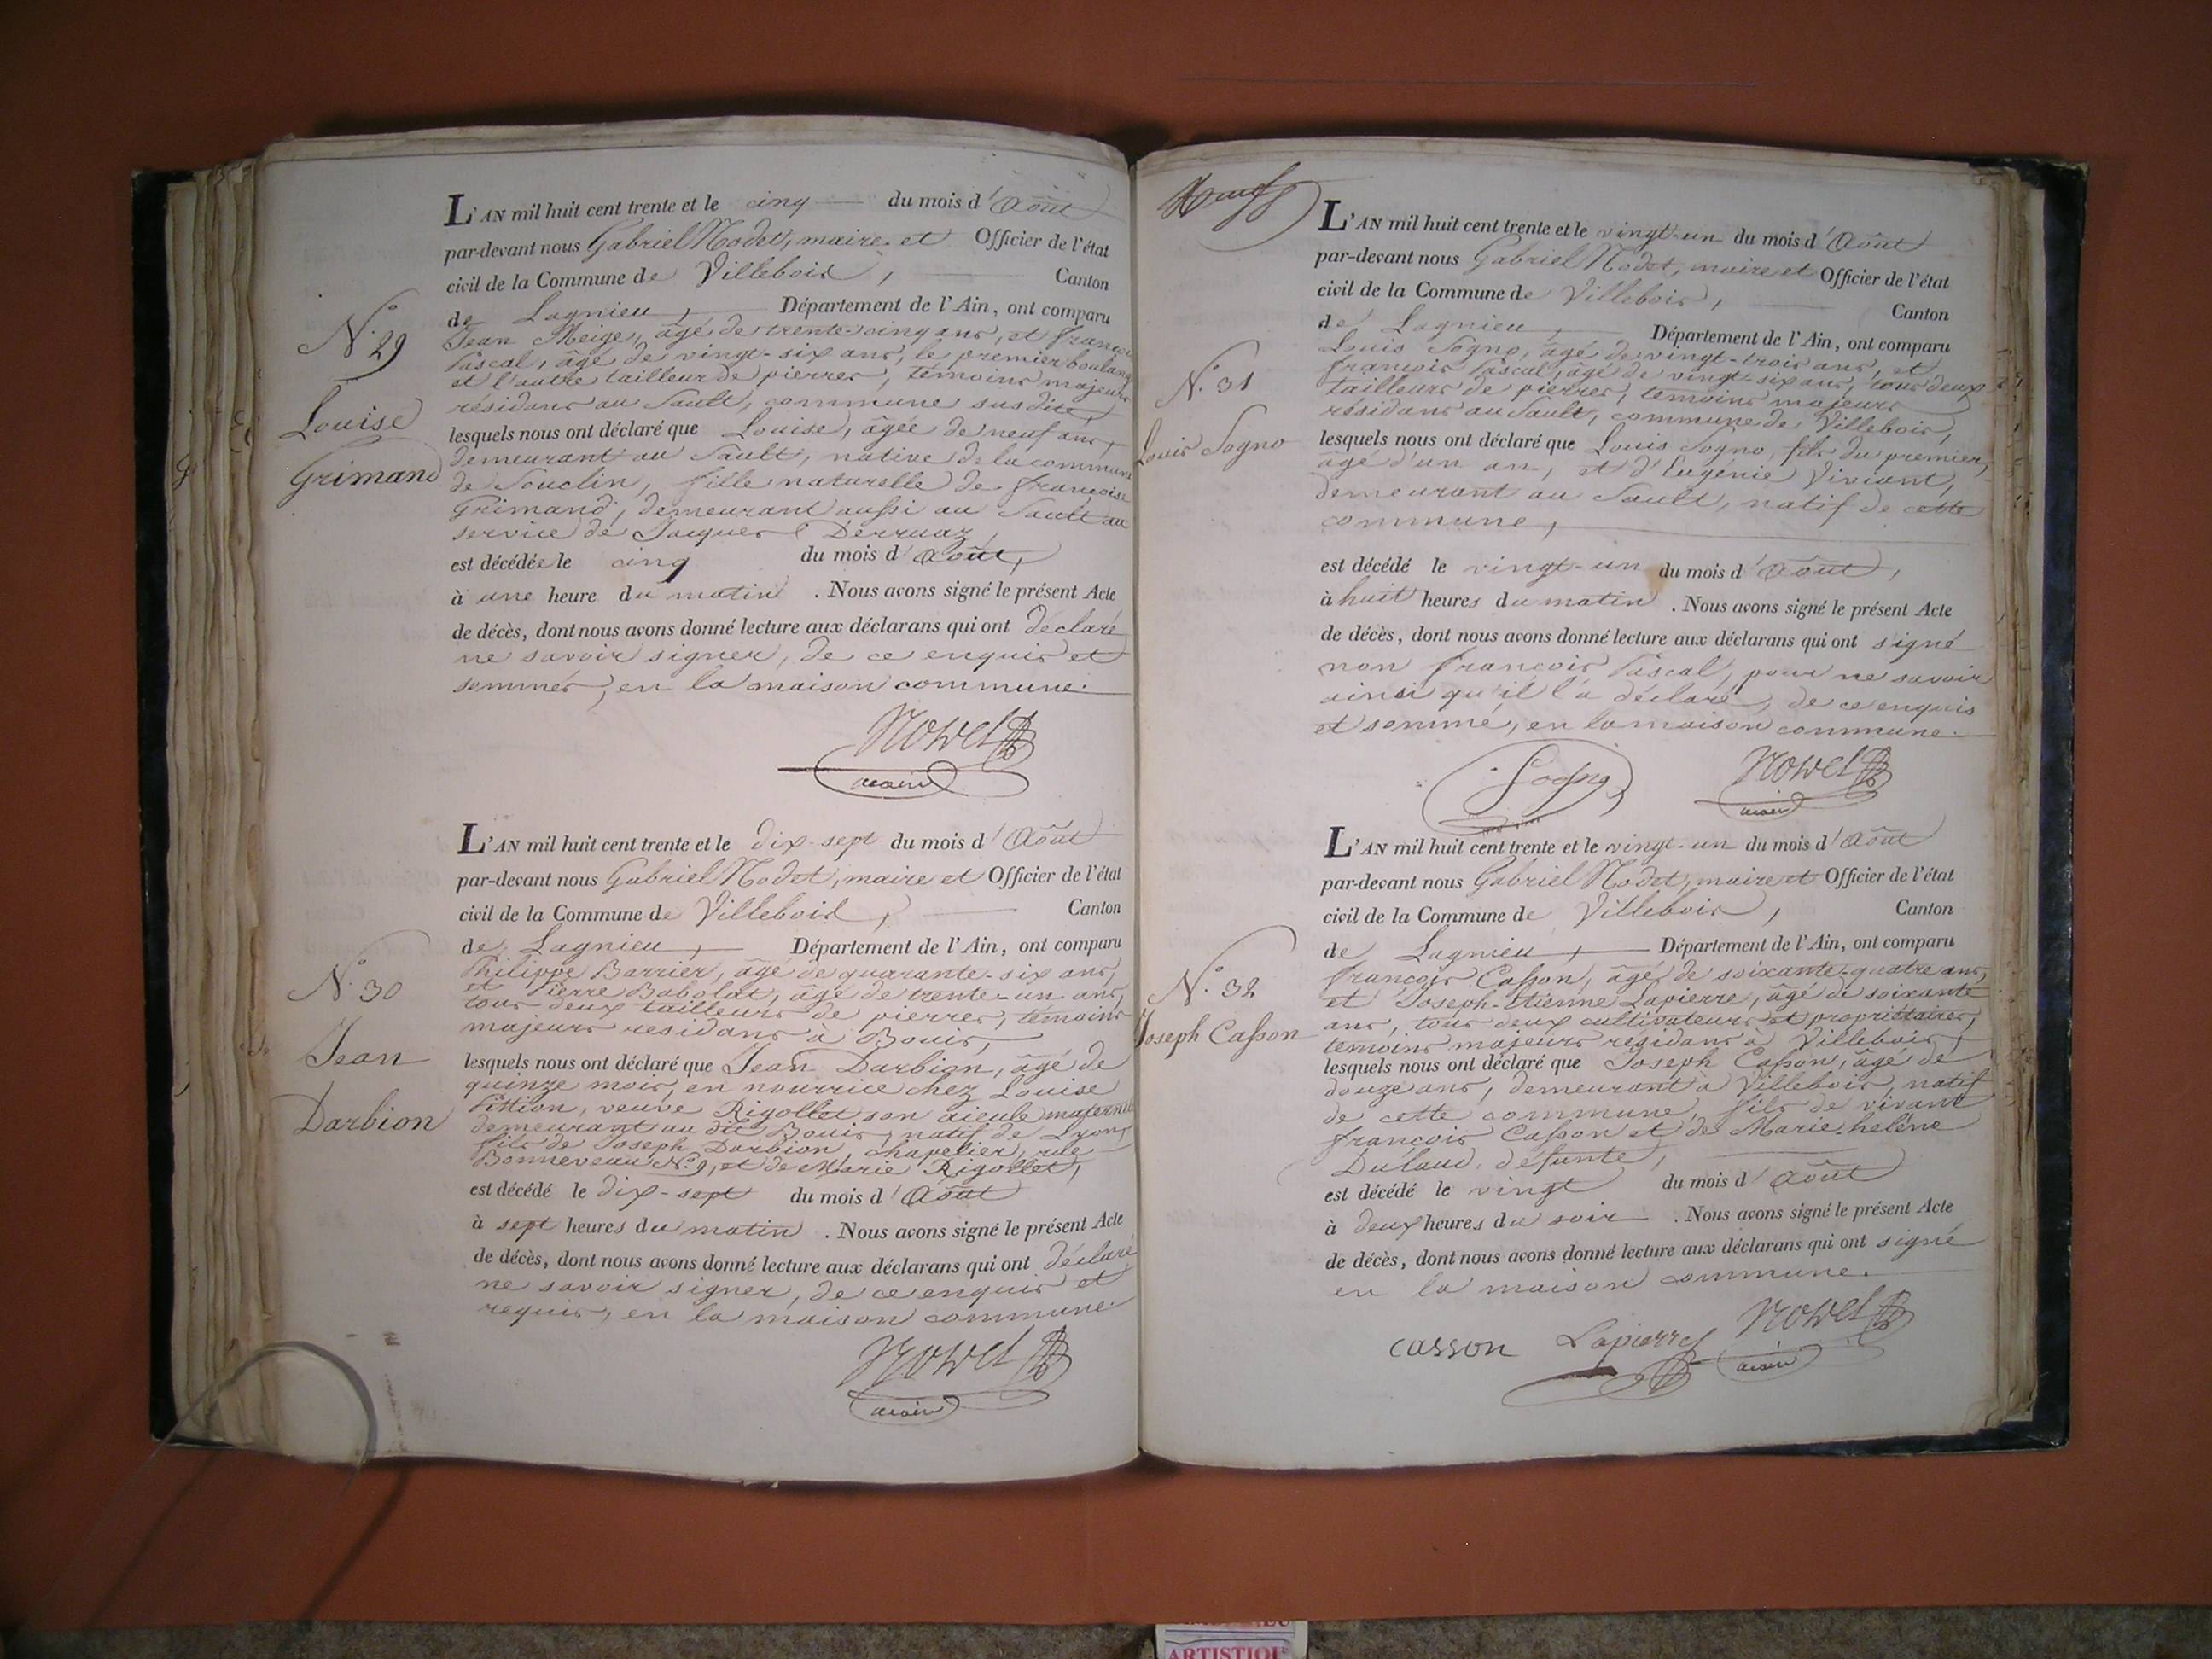 L'AN mil huit cent trente et le cinq du mois d'Août
par-devant nous Gabriel Nodet, maire et Officier de l'état
civil de la Commune de Villebois, Canton
de Lagnieu, Département de l'Ain, ont comparu
Jean Meige, âgé de trente-cinq ans, et françois
Pascal, âgé de vingt-six ans, le premier boulang
et l'autre tailleur de pierres, témoins majeurs
résidans au Sault, commune susdite,
lesquels nous ont déclaré que Louise, âgée de neuf ans,
demeurant au Sault, native de la commune
de Souclin, fille naturelle de françoise
Grimand, demeurant aussi au Sault au
service de Jacques Derruaz,
est décédée le cinq du mois d'Août,
à une heure du matin. Nous avons signé le présent Acte
de décès, dont nous avons donné lecture aux déclarans qui ont déclaré
ne savoir signer, de ce enquis et
sommés, en la maison commune.
N° 29
Louise
Grimand
Nodet
maire
L'AN mil huit cent trente et le dix-sept du mois d'Août
par-devant nous Gabriel Nodet, maire et Officier de l'état
civil de la Commune de Villebois, Canton
de Lagnieu, Département de l'Ain, ont comparu
Philippe Barrier, âgé de quarante-six ans,
et Pierre Babolat, âgé de trente-un ans,
tous deux tailleurs de pierres, témoins
majeurs residans à Bouis,
lesquels nous ont déclaré que Jean Darbion, âgé de
quinze mois, en nourrice chez Louise
Pittion, veuve Rigollet son aieule maternel
demeurant au dit Bouis, natif de Lyon,
fils de Joseph Darbion, chapelier, rue
Bonneveau N° 9, et de Marie Rigollet,
est décédé le dix-sept du mois d'Août
à sept heures du matin. Nous avons signé le présent Acte
de décès, dont nous avons donné lecture aux déclarans qui ont déclaré
ne savoir signer, de ce enquis et
requis, en la maison commune.
N° 30
Jean
Darbion
Nodet
maire
L'AN mil huit cent trente et le vingt-un du mois d'Août
par-devant nous Gabriel Nodet, maire et Officier de l'état
civil de la Commune de Villebois, Canton
de Lagnieu, Département de l'Ain, ont comparu
Louis Sogno, âgé de vingt-trois ans, et
françois Pascal, âgé de vingt-six ans, tous deux
tailleurs de pierres, témoins majeurs
résidans au Sault, commune de Villebois,
lesquels nous ont déclaré que Louis Sogno, fils du premier,
âgé d'un an, et d'Eugénie Viviant,
demeurant au Sault, natif de cette
commune,
est décédé le vingt-un du mois d'Août,
à huit heures du matin. Nous avons signé le présent Acte
de décès, dont nous avons donné lecture aux déclarans qui ont signé
non françois Pascal, pour ne savoir
ainsi qu'il l'a déclaré, de ce enquis
et sommé, en la maison commune.
N° 31
Louis Sogno
Sogno
Nodet
maire
L'AN mil huit cent trente et le vingt-un du mois d'Août
par-devant nous Gabriel Nodet, maire et Officier de l'état
civil de la Commune de Villebois, Canton
de Lagnieu, Département de l'Ain, ont comparu
françois Casson, âgé de soixante-quatre ans,
et Joseph-Etienne Lapierre, âgé de soixante
ans, tous deux cultivateurs et propriétaires,
témoins majeurs residans à Villebois,
lesquels nous ont déclaré que Joseph Casson, âgé de
douze ans, demeurant à Villebois, natif
de cette commune, fils de vivant
françois Casson et de Marie-hélène
Dulaud, défunte,
est décédé le vingt du mois d'Août
à deux heures du soir. Nous avons signé le présent Acte
de décès, dont nous avons donné lecture aux déclarans qui ont signé
en la maison commune.
N° 32
Joseph Casson
casson Lapierre Nodet
maire
ARTISTIQU